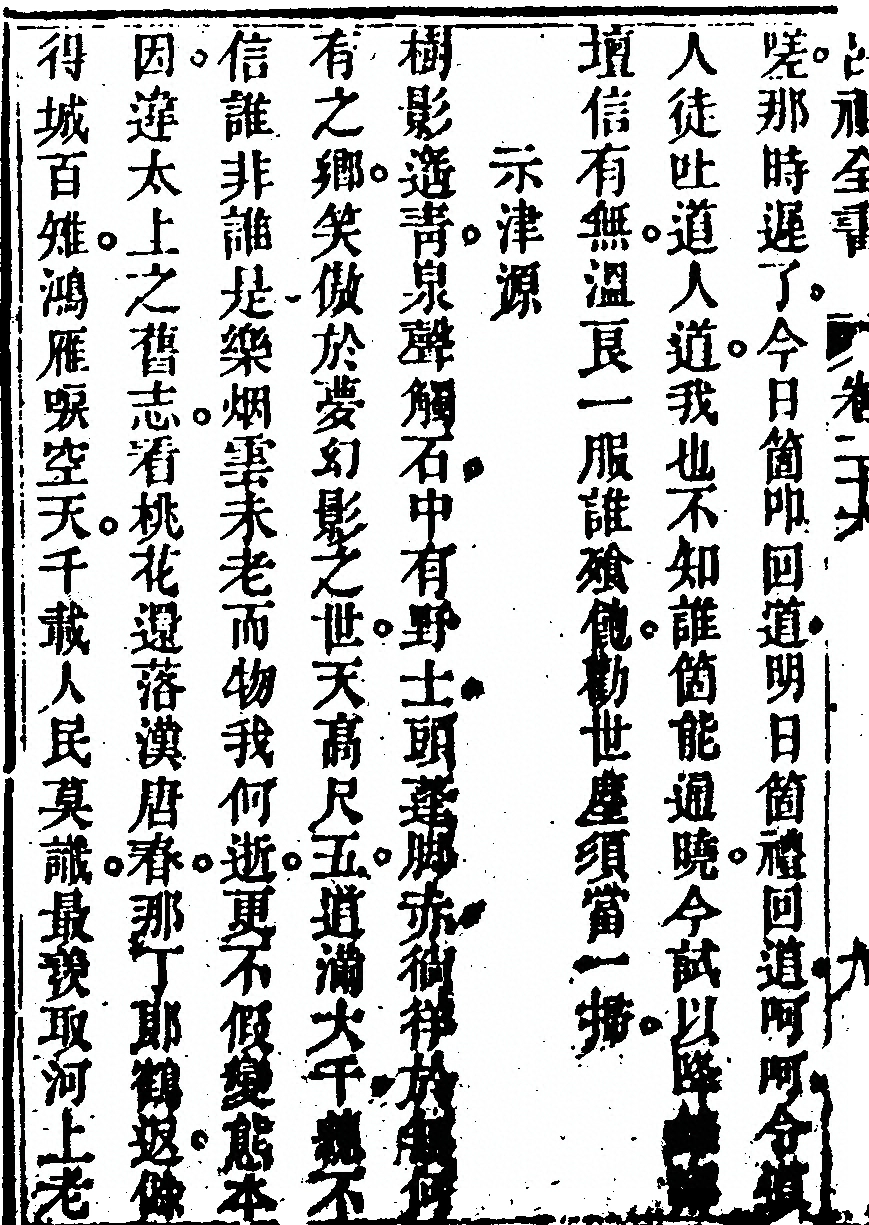 呂祖全書 卷二十六 九
嗟那時遲了今日箇叩回道明日箇禮回道呵呵令道
人徒吐道人道我也不知誰箇能通曉今試以降
壇信有無溫良一服誰飱他勸世塵須當一掃
示津源
樹影遮青泉聲觸石中有野士頭蓬脚赤徜徉於無何
有之鄉笑傲於夢幻影之世天高尺五道滿大千魏不
信誰非誰是樂烟雲未老而物我何逝更不假變態本
因違太上之舊志看桃花還落漢唐春那丁耶鶴返像
得城百雉鴻雁唳空天千載人民莫識最羨取河上老